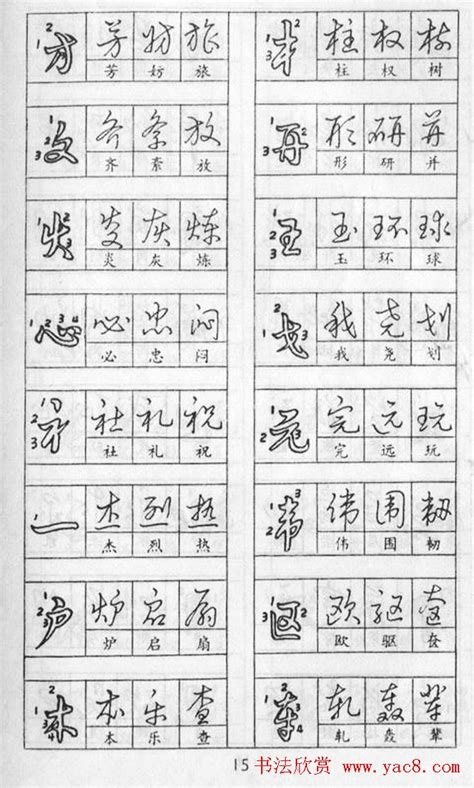 方 芳 妨 旅
芳 妨 旅
攵 齐 放
齐 放
火 炎 灰 炼
炎 灰 炼
心 必 忠 闷
必 忠 闷
礻 社 礼 祝
社 礼 祝
杰 烈 热
杰 烈 热
户 炉 启 扇
炉 启 扇
木 本 乐 查
本 乐 查
木 柱 权 树
柱 权 树
开 形 研 并
形 研 并
王 玉 环 球
玉 环 球
戈 我 尧 划
我 尧 划
元 完 远 玩
完 远 玩
韦 伟 围 韧
伟 围 韧
区 欧 驱 奁
欧 驱 奁
车 轧 轰 辈
轧 轰 辈
15
书法欣赏
www.yac8.com